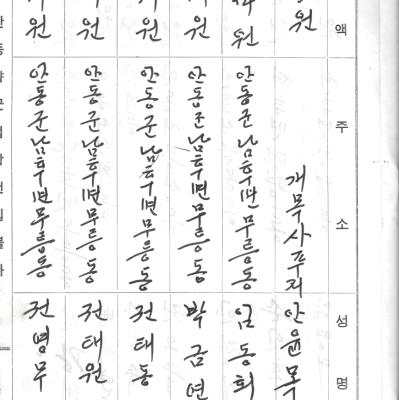 액 주소 성명
원 개목사 안윤목
원 안동군남후면무릉동 임동희
원 안동군남후면무릉동 박금연
원 안동군남후면무릉동 전태동
원 안동군남후면무릉동 전태원
원 안동군남후면무릉동 전명무